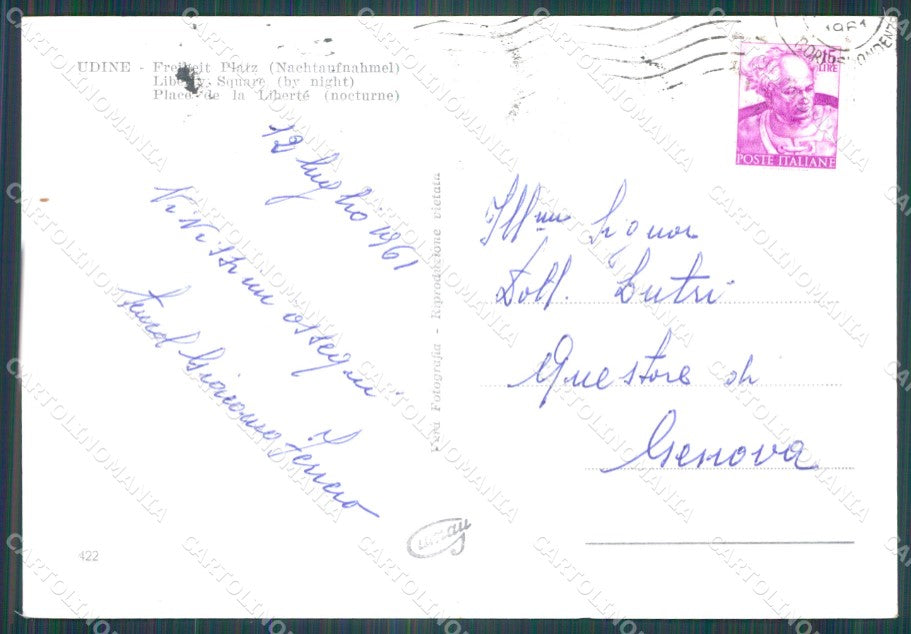 UDINE - Freiheit Platz (Nachtaufnahmel)
Liberty Square (by night)
Place de la Liberté (nocturne)
12 luglio 1961
Vivissimi ossequi
Giacomo Ferrero
Vera Fotografia - Riproduzione vietata
1961
15
LIRE
POSTE ITALIANE
Ill.mo Signor
Dott. Cutrì
Questore di
Genova
422
CARTOLINOMANIA